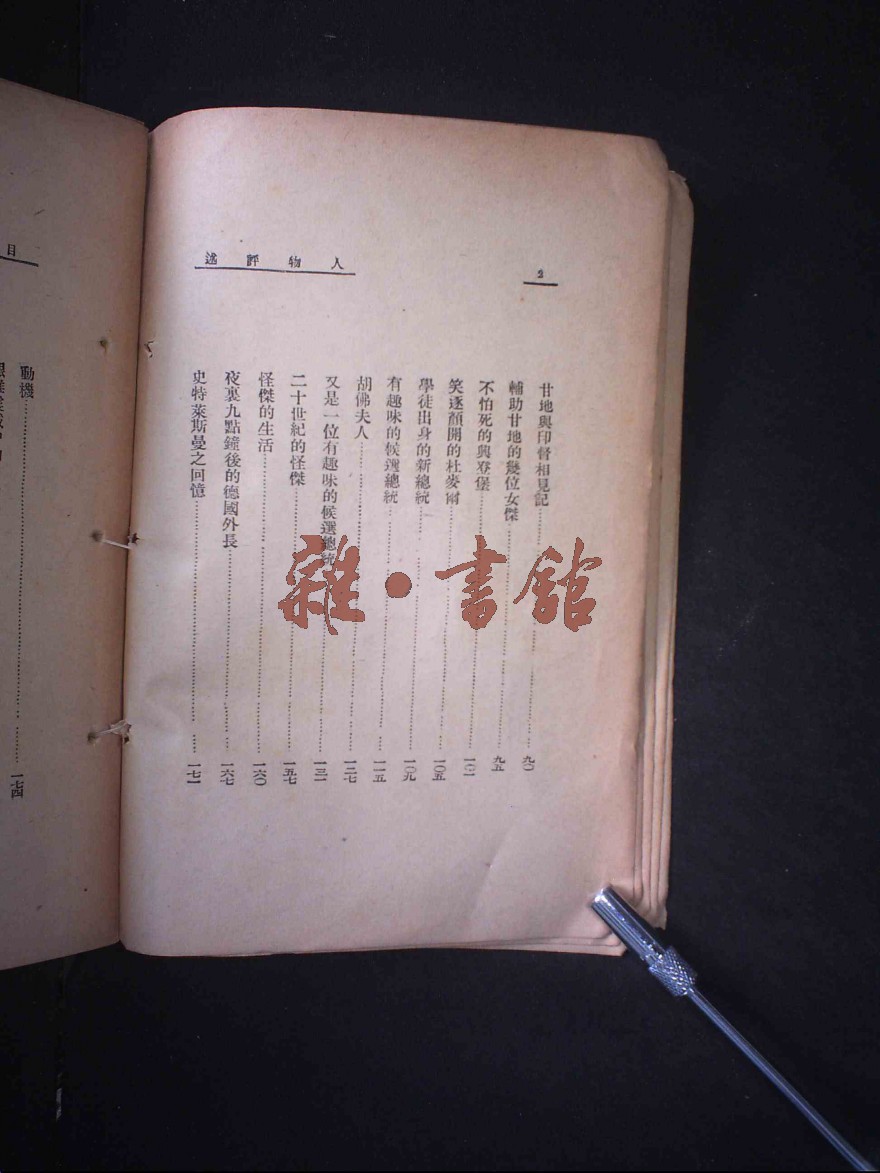 人物評述
2
甘地與印督相見記……九〇
輔助甘地的幾位女傑……九五
不怕死的興登堡……一〇一
笑逐顏開的杜麥爾……一〇五
學徒出身的新總統……一〇九
有趣味的候選總統……一一五
胡佛夫人……一二七
又是一位有趣味的候選總統……一三一
二十世紀的怪傑……一五七
怪傑的生活……一六〇
夜裏九點鐘後的德國外長……一六七
史特萊斯曼之回憶……一七一
目
動機……一七四
雜·書館